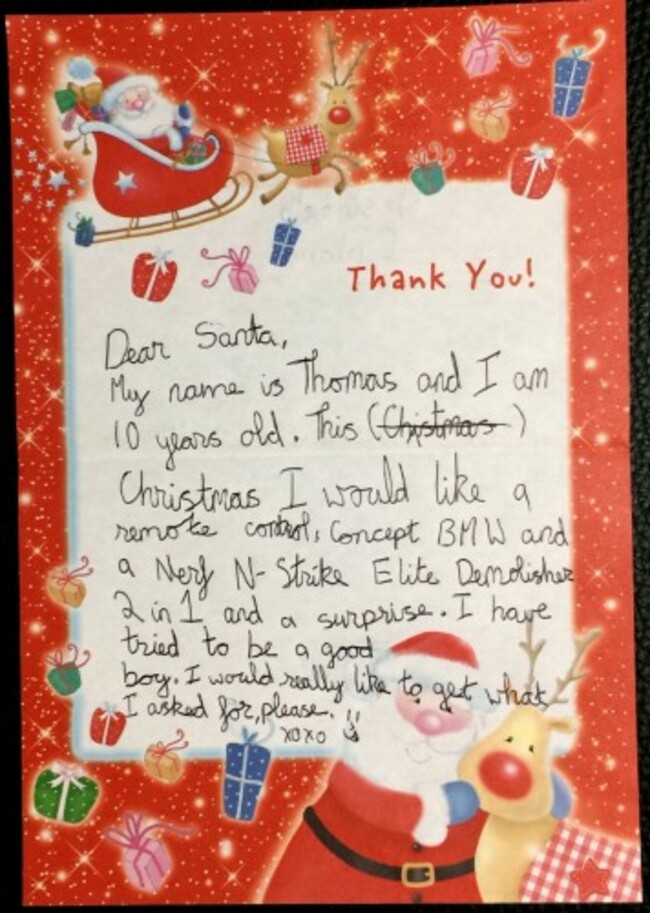 Thank You!
Dear Santa,
My name is Thomas and I am
10 years old. This (Christmas)
Christmas I would like a
remote control, Concept BMW and
a Nerf N-Strike Elite Demolisher
2 in 1 and a surprise. I have
tried to be a good
boy. I would really like to get what
I asked for, please.
xoxo